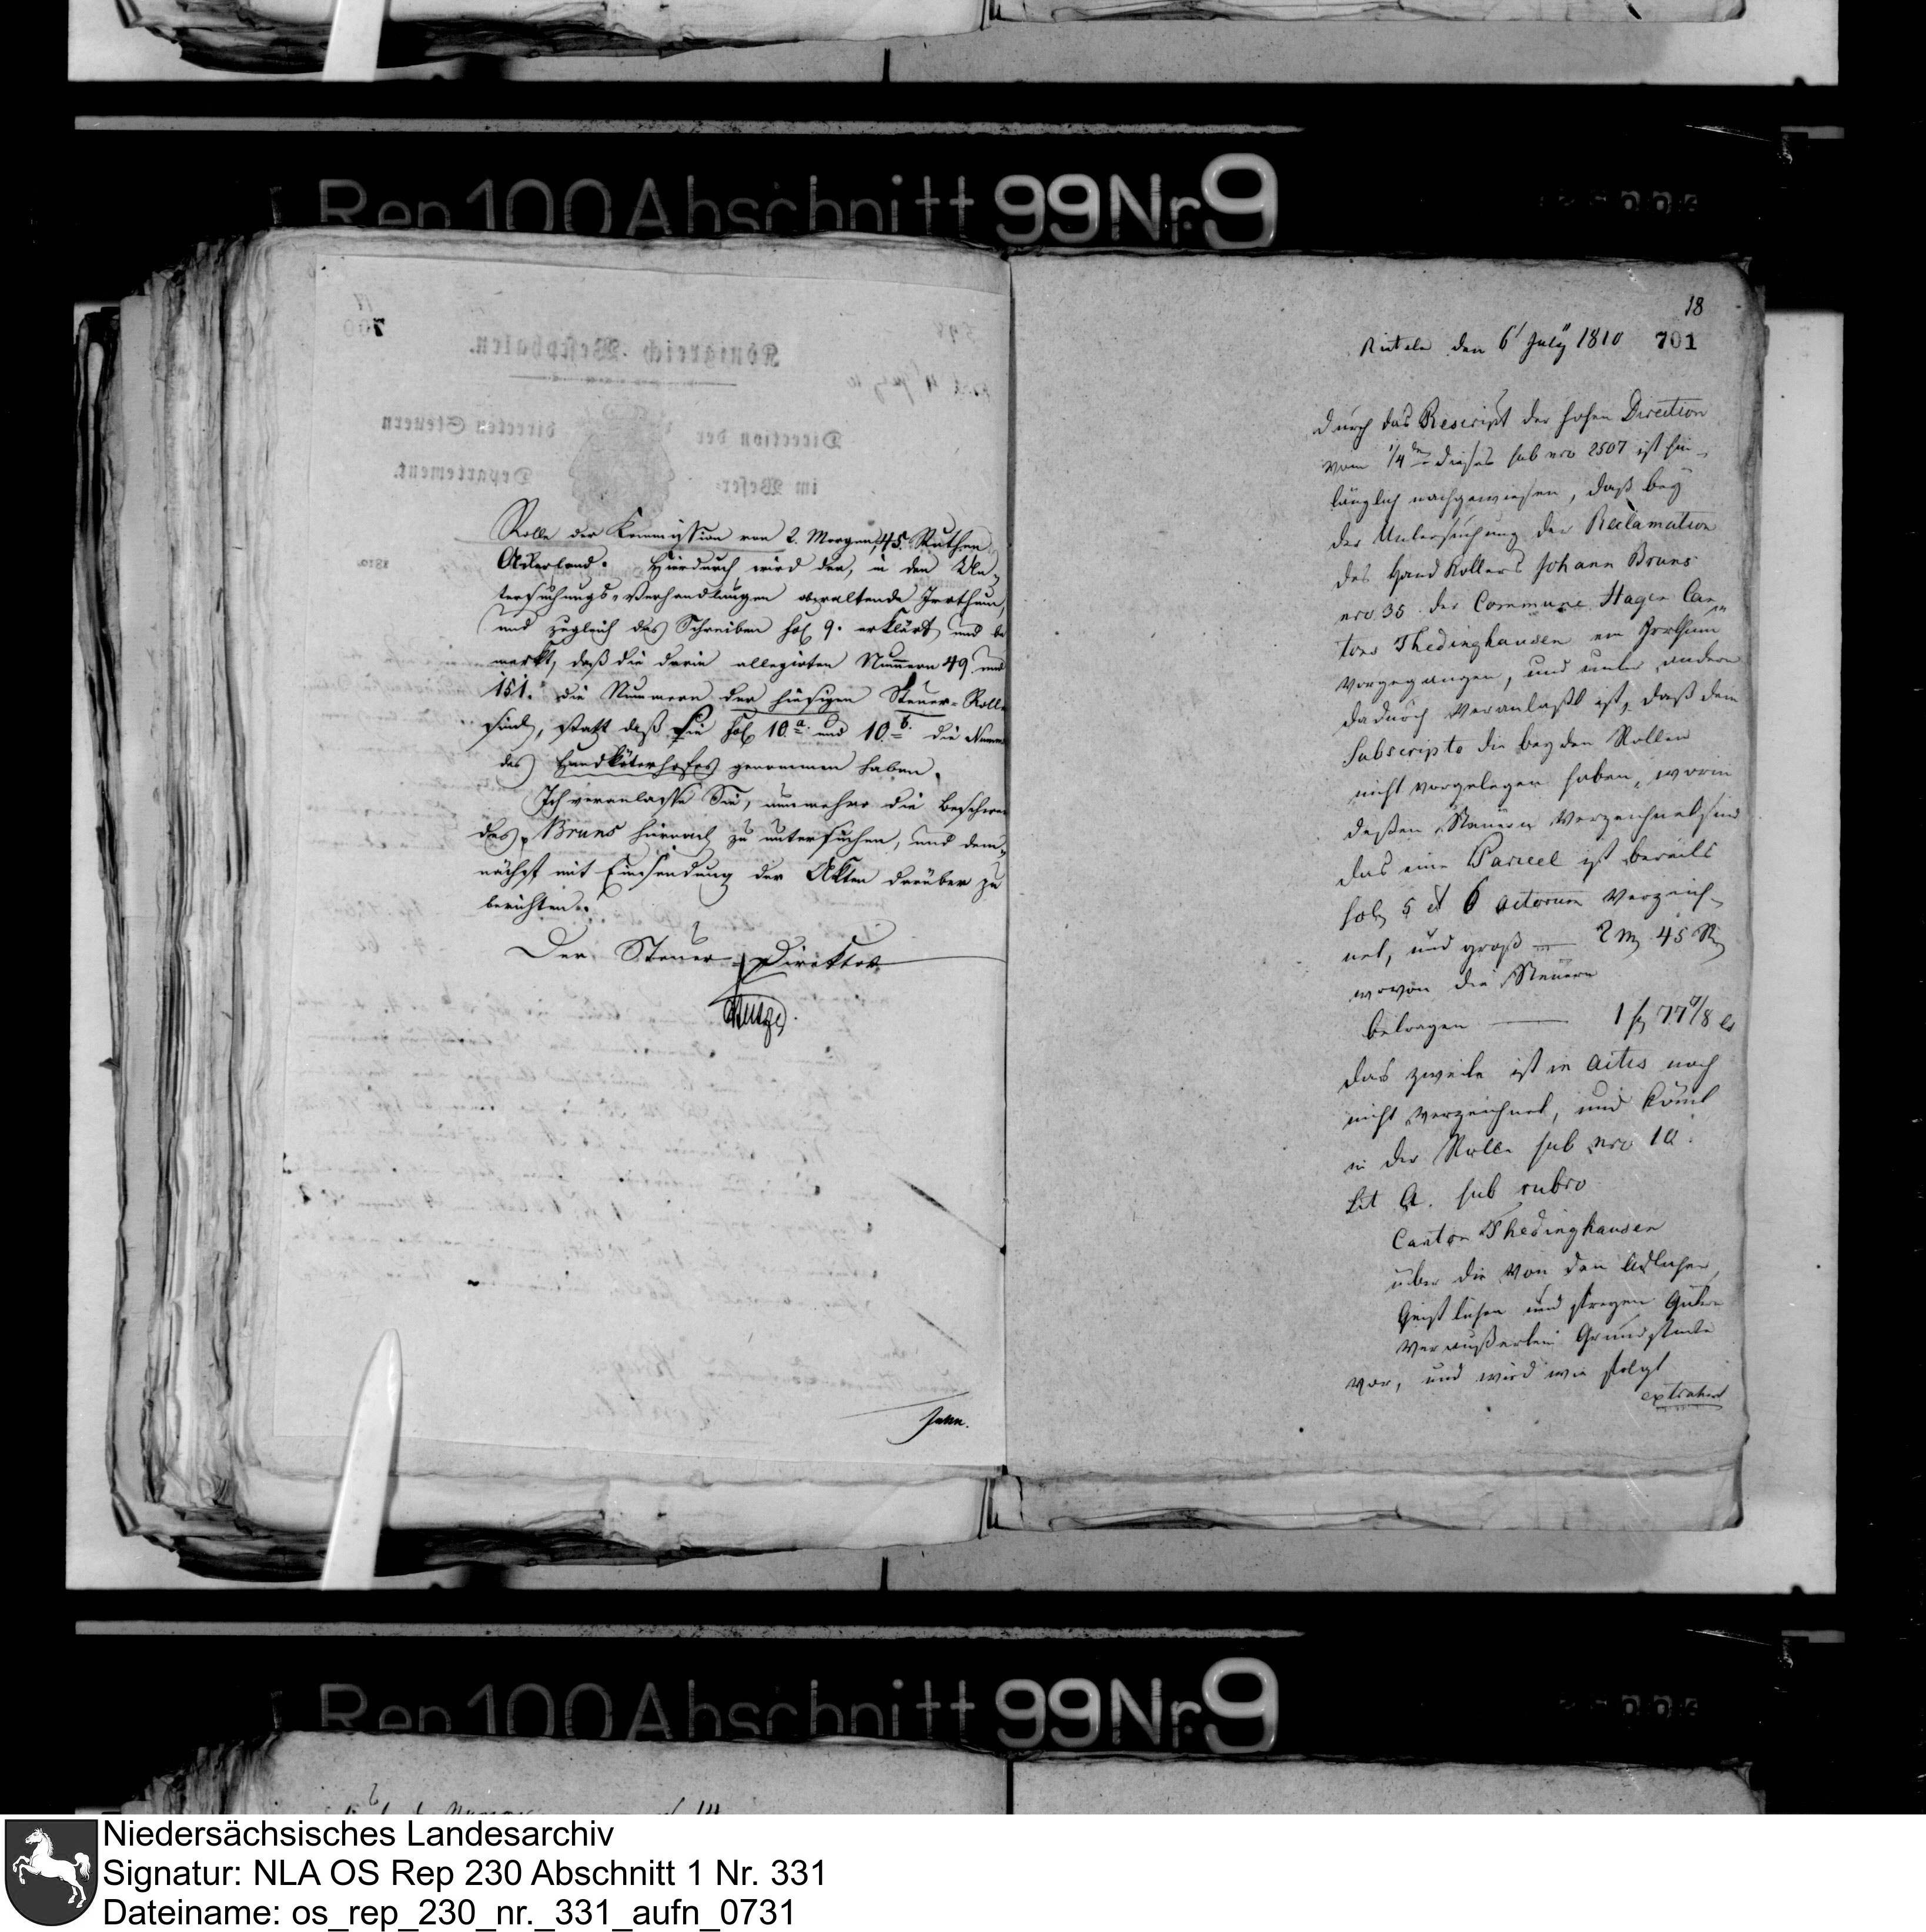 Rep 100 Abschnitt 99 Nr 9
Rolle der Kommission von 2. Morgen, 45. Ruthen
Ackerland. Hierdurch wird der, in den Un-
tersuchungs-Verhandlungen obwaltende Irrthum,
und zugleich das Schreiben fol. 9. erklärt und be
merkt, daß die darin allegirten Nummern 49. und
151. die Nummern der hiesigen Steuer-Rolle
sind, statt daß Sie fol. 10.a und 10.b. die Numm
des Handköterhofes genommen haben.
Ich veranlasse Sie, nunmehro die Beschwer
des, Bruns hiernach zu untersuchen, und dem-
nächst mit Einsendung der Akten darüber zu
berichten.
Der Steuer-Direktor
18
701
Rinteln den 6t July 1810
durch das Rescript der hohen Direction
vom 1/4 dieses sub nro 2507 ist hin-
länglich nachgewiesen, daß bey
der Untersuchung der Reclamation
des Handkötters Johann Bruns
nro 35. der Commune Hagen Can-
tons Thedinghausen ein Irrthum
vorgegangen, und unter andern
dadurch veranlaßt ist, daß dem
Subscripto die beyden Rollen
nicht vorgelegen haben, worin
deßen Steuern verzeichnet sind
das eine Parcel ist bereits
fol. 5 et 6 actorum verzeich-
net, und groß — 2 M 45 R
wovon die Steuern
betragen — 1 f 77 7/8 c
das zweite ist in actis noch
nicht verzeichnet, und kömt
in der Rolle sub nro 10.
Lit A. sub rubro
Canton Thedinghausen
über die von den Adlichen,
Geistlichen und freyen Gütern
veraußerten Grundstücke
vor, und wird wie folgt
extrahirt
Rep 100 Abschnitt 99 Nr 9
Niedersächsisches Landesarchiv
Signatur: NLA OS Rep 230 Abschnitt 1 Nr. 331
Dateiname: os_rep_230_nr._331_aufn_0731